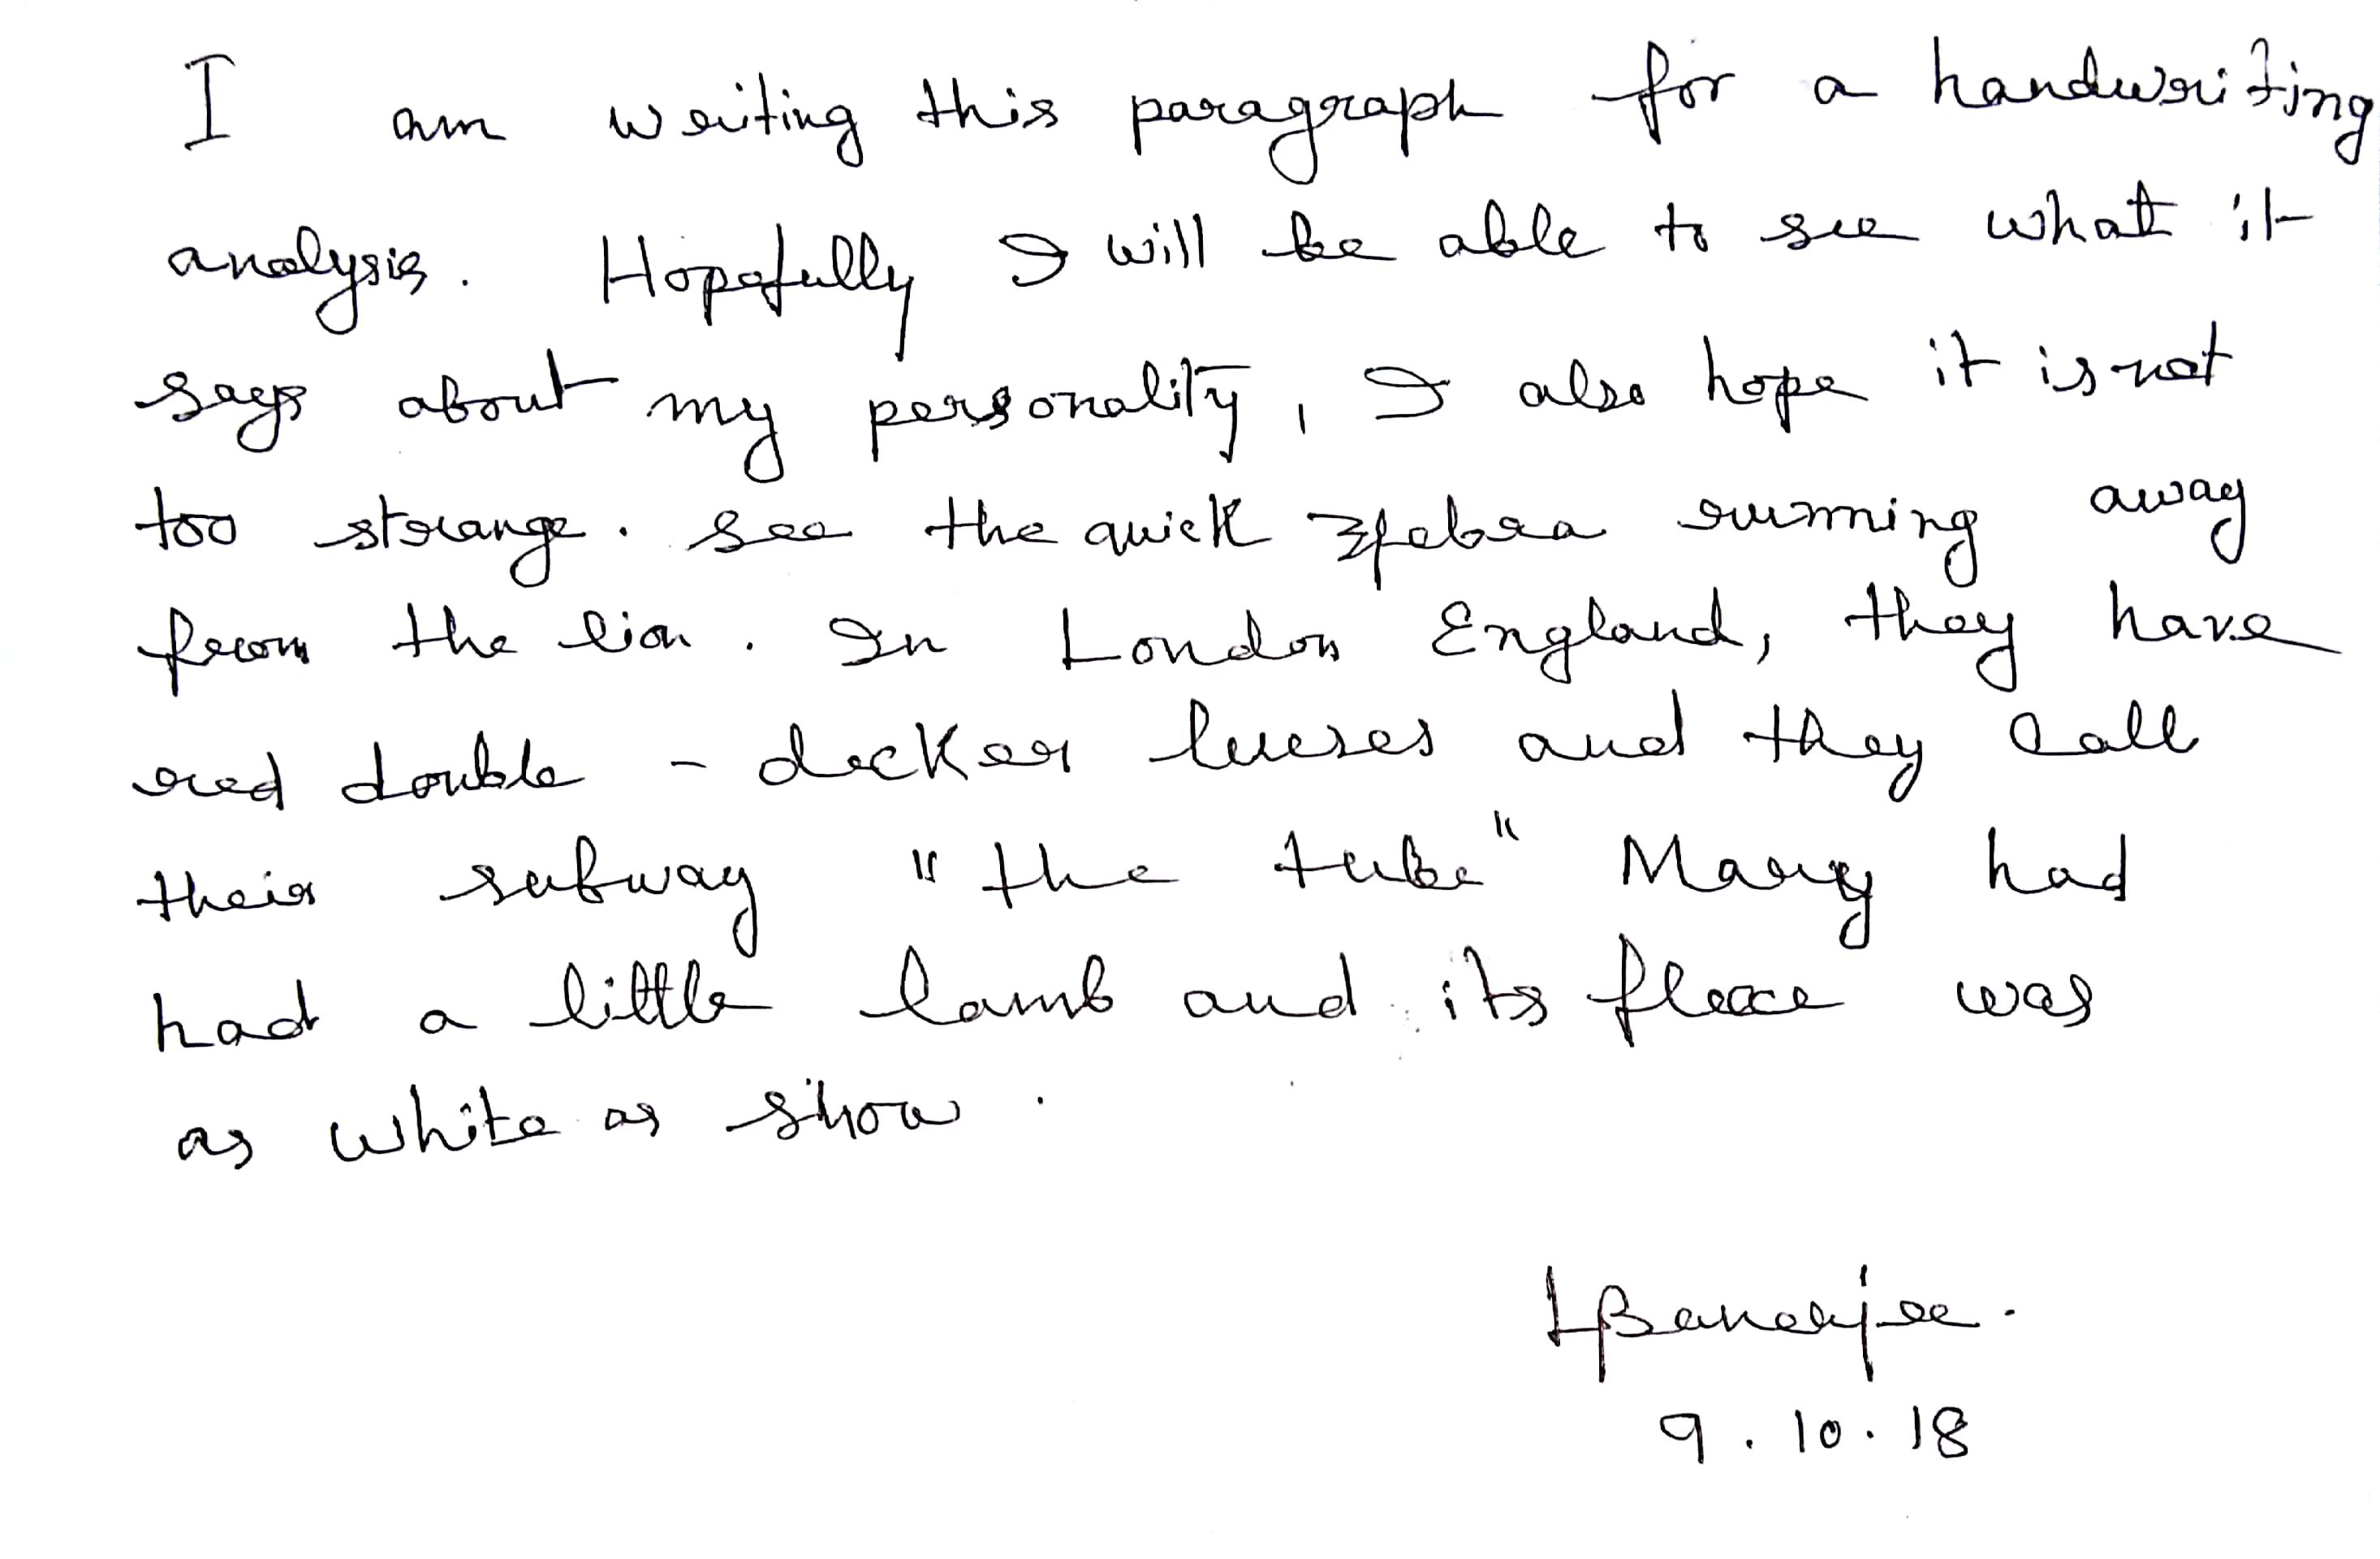 I am writing this paragraph for a handwriting
analysis. Hopefully I will be able to see what it
says about my personality, I also hope it is not
too strange. see the quick zebra running away
from the lion. In London England, they have
red double - decker buses and they call
their subway "the tube" Mary had
had a little lamb and its fleece was
as white as snow.
Banerjee.
9.10.18